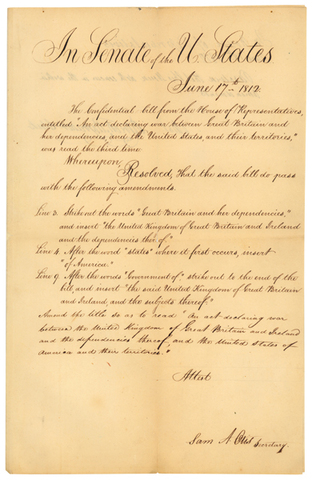 In Senate of the U. States
June 17th 1812.
The Confidential bill from the House of Representatives,
intitled "An act declaring war between Great Britain and
her dependencies, and the United States and their territories,"
was read the third time
Whereupon,
Resolved, That the said bill do pass
with the following amendments.
Line 3. Strike out the words "Great Britain and her dependencies,"
and insert "the United Kingdom of Great Britain and Ireland
and the dependencies thereof."
Line 4. After the word "States" where it first occurs, insert
"of America."
Line 9. After the words "Government of" strike out to the end of the
bill, and insert "the said United Kingdom of Great Britain
and Ireland, and the subjects thereof."
Amend the title so as to read "An act declaring war
between the United Kingdom of Great Britain and Ireland
and the dependencies thereof, and the United States of
America and their territories."
Attest
Sam A. Otis Secretary.